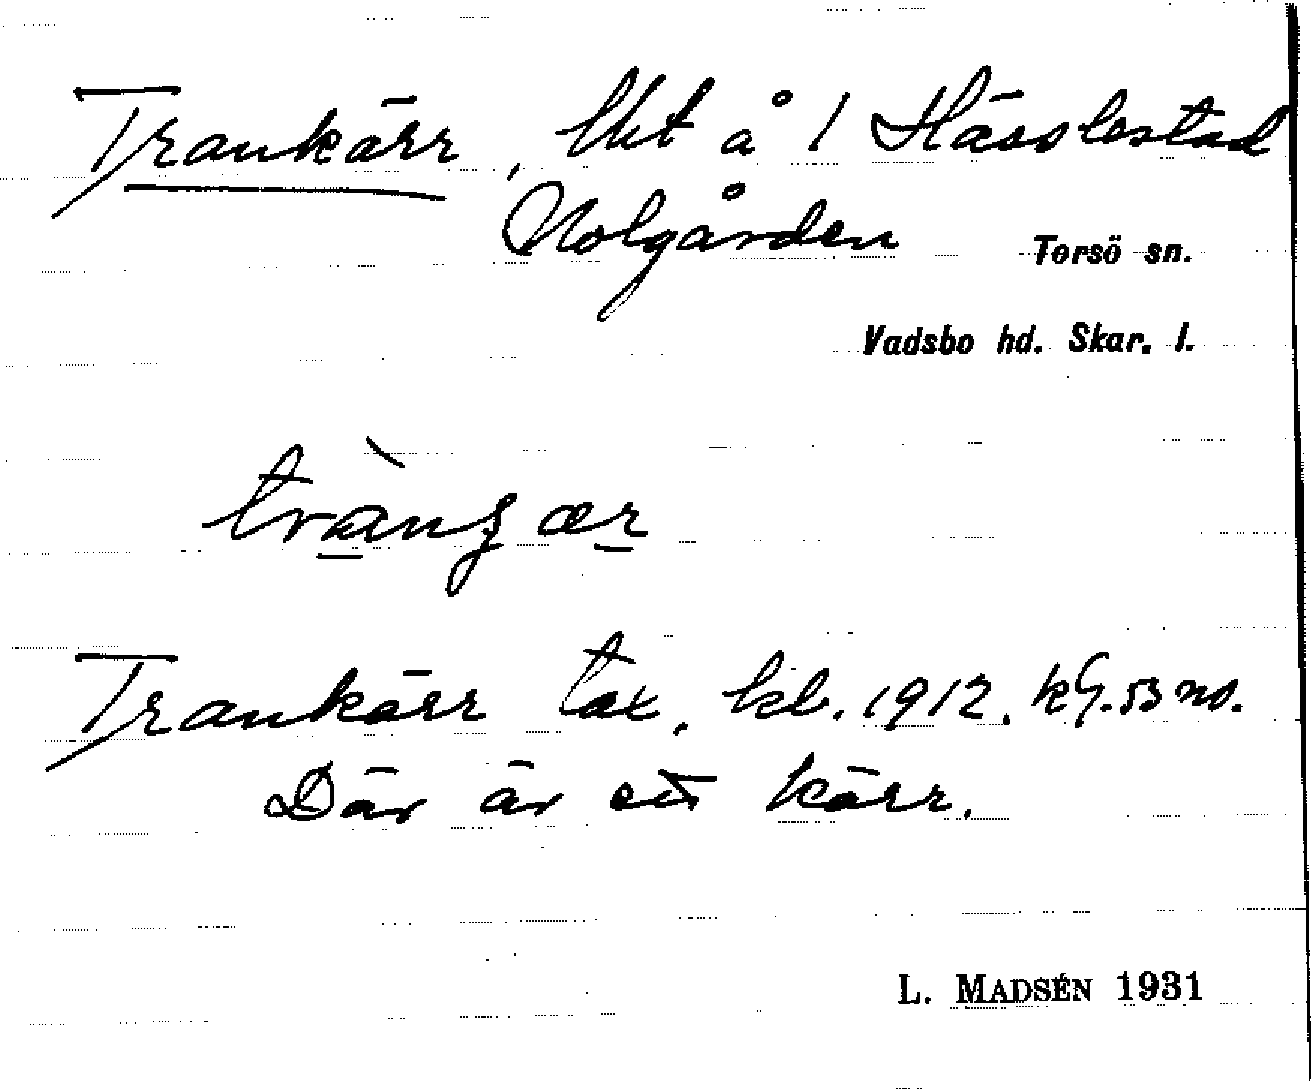 Trankärr, lht å 1 Hässlestad
Nolgården Torsö sn.
Vadsbo hd. Skar. l.
Trankärr tax. kl. 1912.
Där är ett kärr.
L. MADSÉN 1931